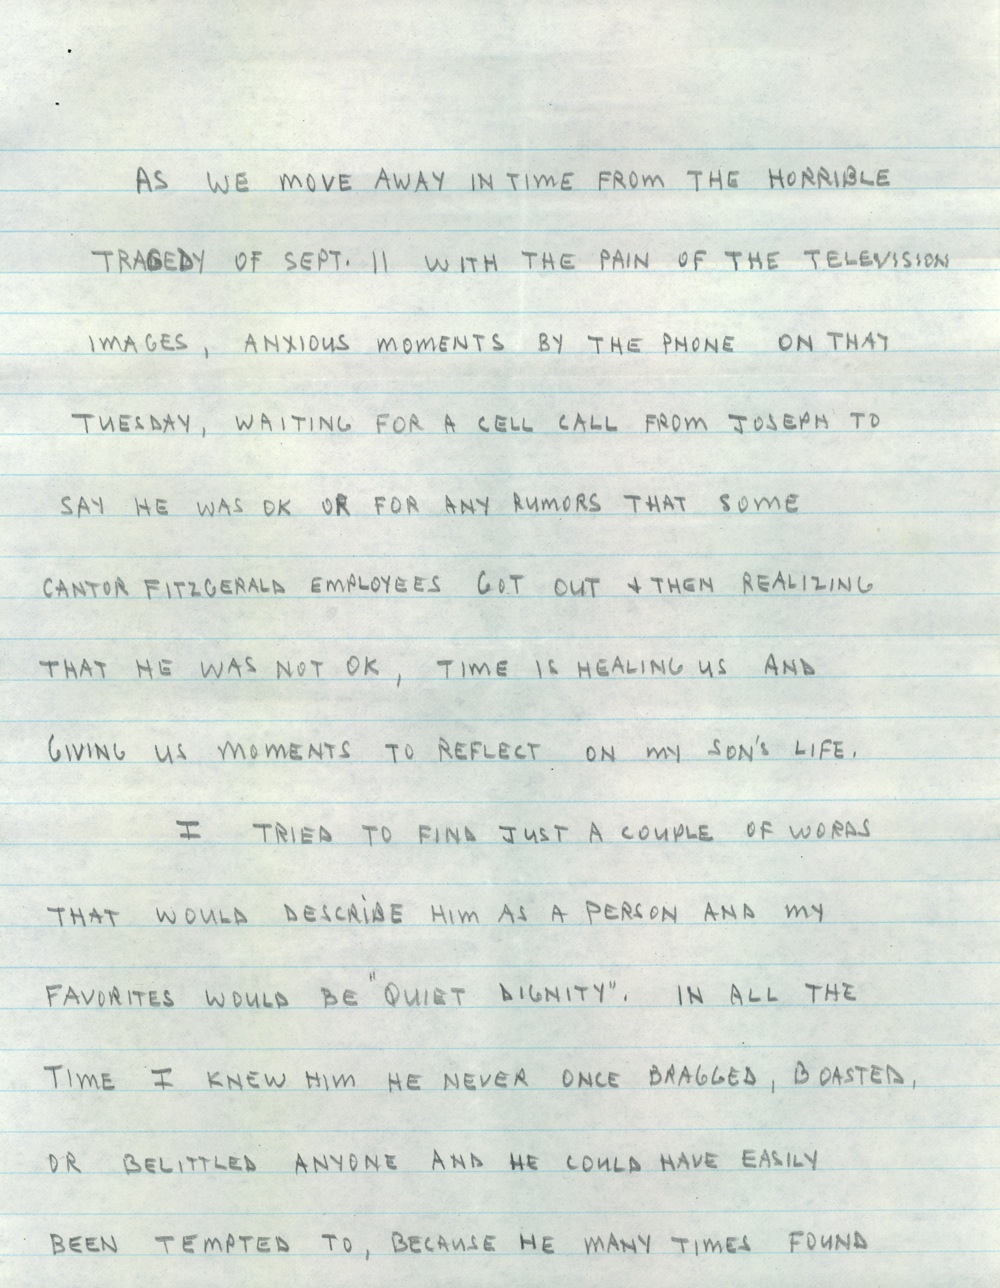 AS WE MOVE AWAY IN TIME FROM THE HORRIBLE
TRAGEDY OF SEPT. 11 WITH THE PAIN OF THE TELEVISION
IMAGES, ANXIOUS MOMENTS BY THE PHONE ON THAT
TUESDAY, WAITING FOR A CELL CALL FROM JOSEPH TO
SAY HE WAS OK OR FOR ANY RUMORS THAT SOME
CANTOR FITZGERALD EMPLOYEES GOT OUT & THEN REALIZING
THAT HE WAS NOT OK, TIME IS HEALING US AND
GIVING US MOMENTS TO REFLECT ON MY SON'S LIFE.
I TRIED TO FIND JUST A COUPLE OF WORDS
THAT WOULD DESCRIBE HIM AS A PERSON AND MY
FAVORITES WOULD BE "QUIET DIGNITY". IN ALL THE
TIME I KNEW HIM HE NEVER ONCE BRAGGED, BOASTED,
OR BELITTLED ANYONE AND HE COULD HAVE EASILY
BEEN TEMPTED TO, BECAUSE HE MANY TIMES FOUND